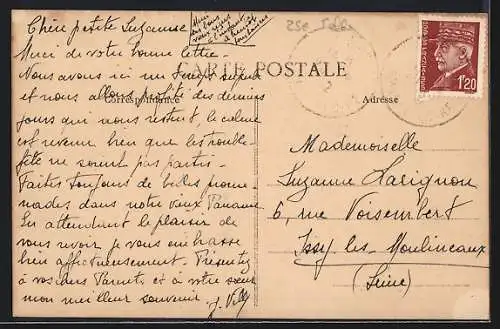 Chère petite Suzanne
Merci de votre bonne lettre.
Nous avons ici un temps superbe
et nous allons profiter des derniers
jours qui nous restent, le calme
est revenu bien que les trouble-
fête ne soient pas partis.
Faites toujours de belles prome-
nades dans notre vieux Paname
En attendant le plaisir de
vous revoir je vous embrasse
bien affectueusement. Présentez
à vos chers Parents et à votre sœur
mon meilleur souvenir.
CARTE POSTALE
Correspondance
Adresse
1f20
Mademoiselle
Suzanne Lavignon
6, rue Voisembert
Issy-les-Moulineaux
(Seine)